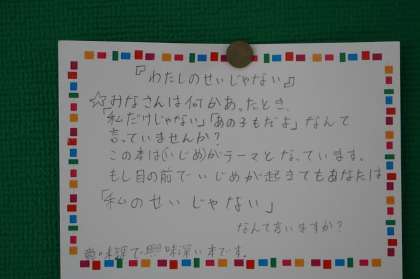 『わたしのせいじゃない』
☆みなさんは何かあったとき、
「私だけじゃない」「あの子もだよ」なんて
言っていませんか?
この本は(いじめ)がテーマとなっています。
もし目の前でいじめが起きてもあなたは
「私のせいじゃない」
なんて言いますか?
で興味深い本です。